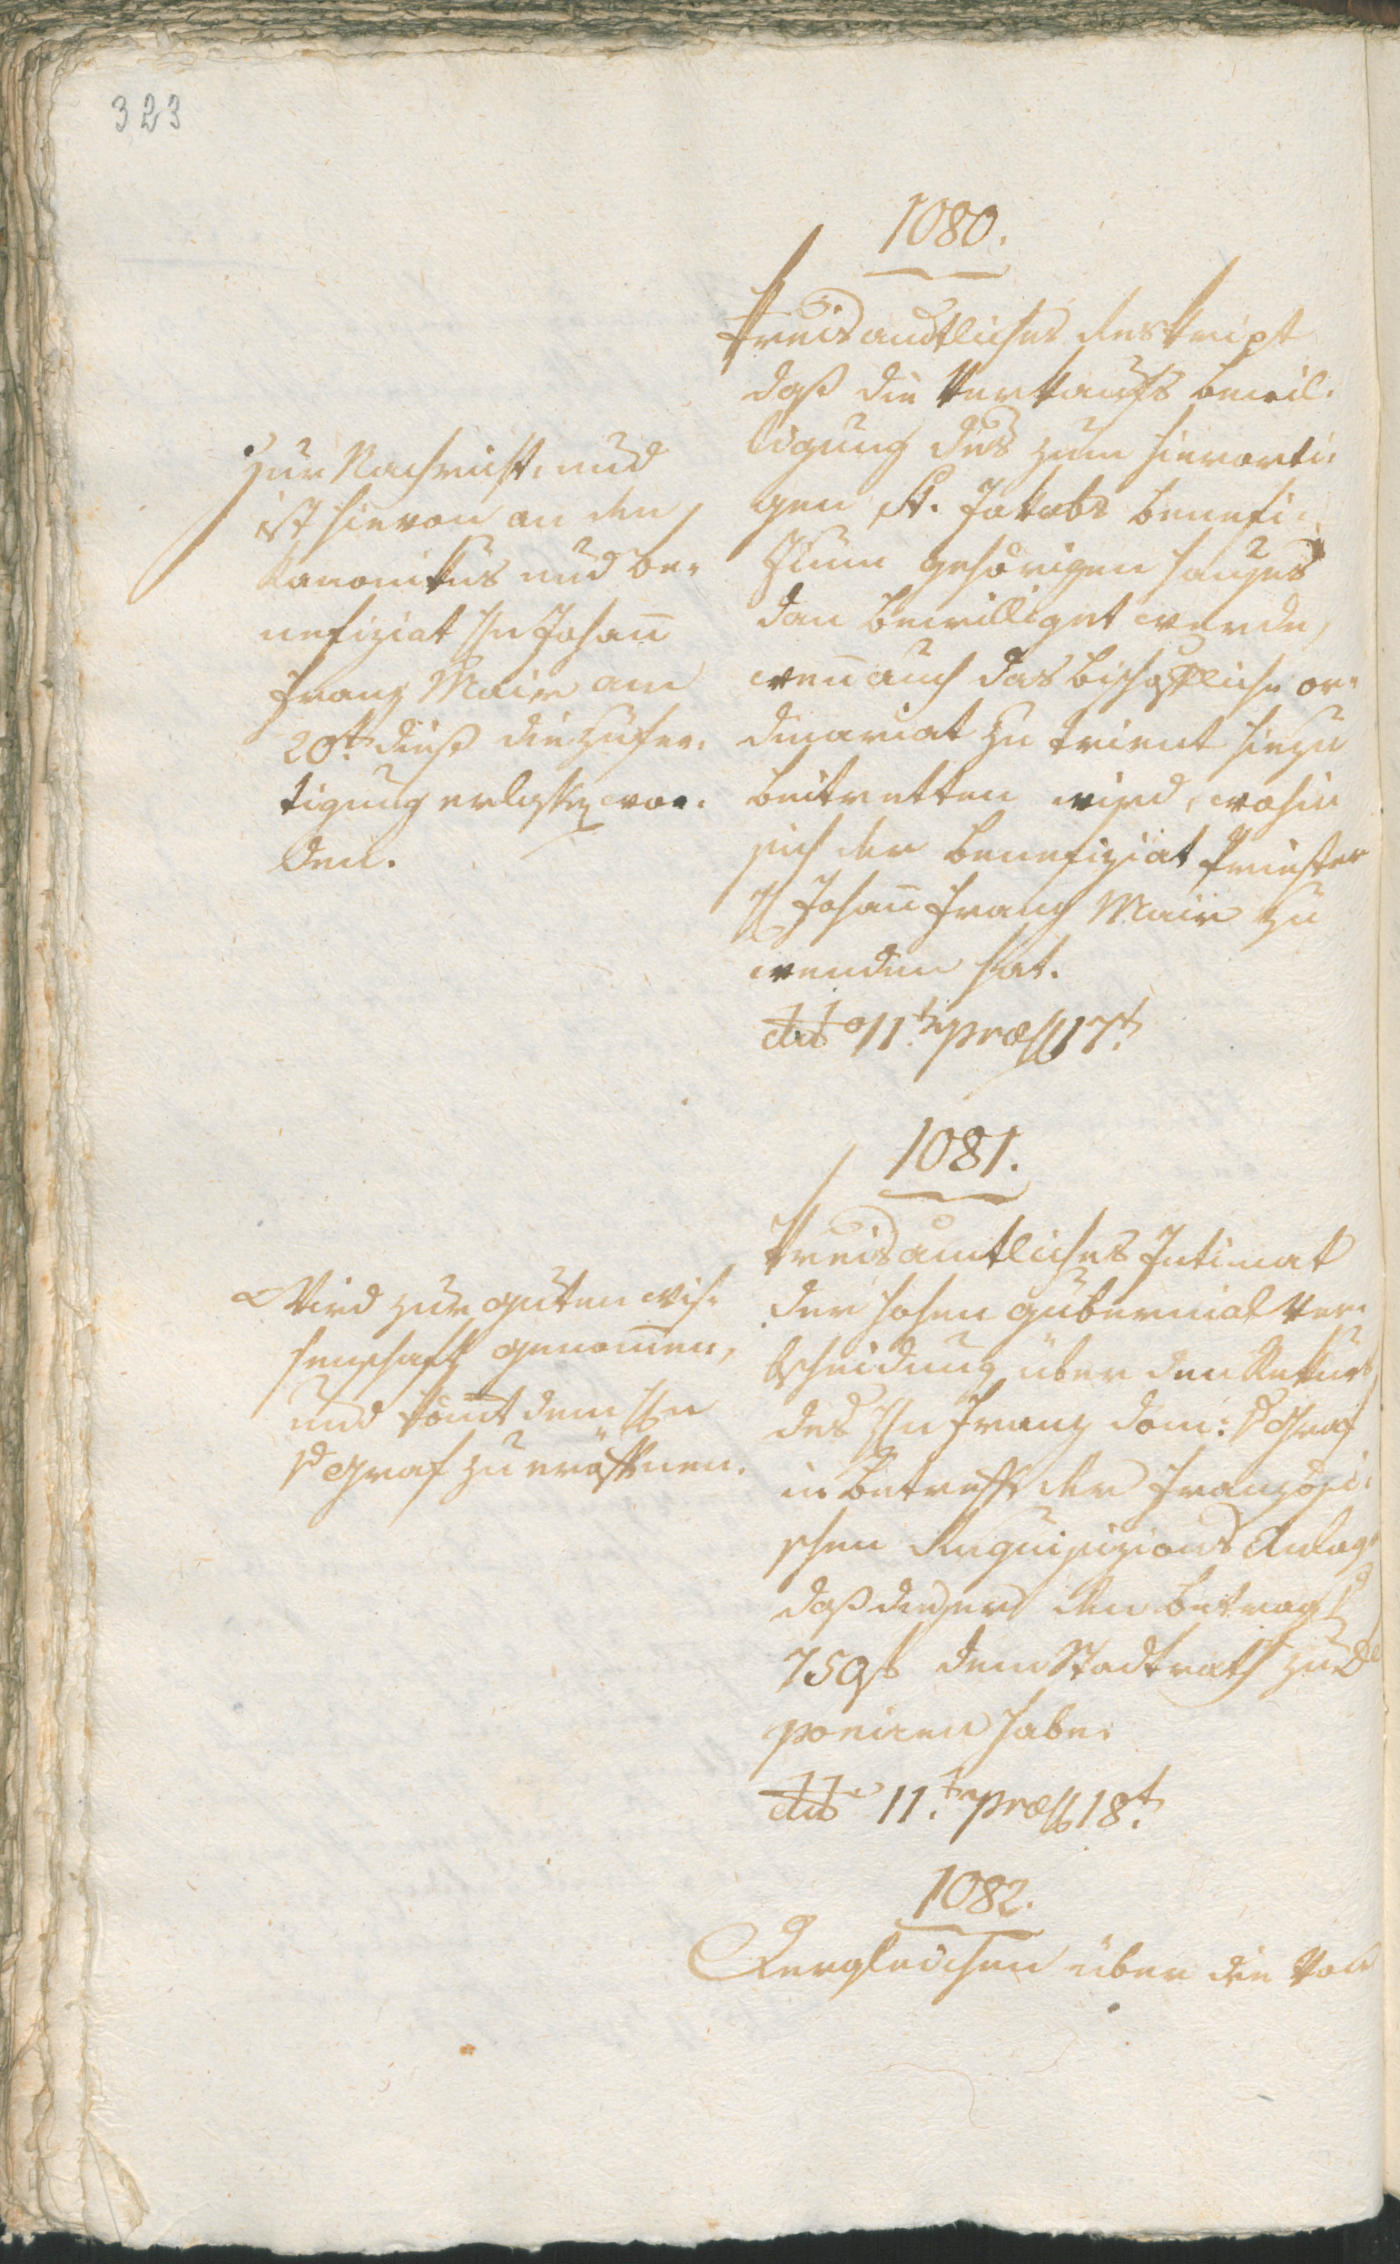 323
1080.
Kreisamtliches Reskript
daß die Verkaufs bewil-
ligung des zum hierorti-
gen St. Jakobs Benefi-
zium gehörigen Hauses
dan bewilliget werde,
wen̄ auch das bischöfliche or-
dinariat zu Trient hiezu
beitretten wird, wohin
sich der Benefiziat Priester
H Johan̄ Franz Mair zu
wenden hat.
ddto 11t. præs 17t.
Zur Nachricht, und
ist hievon an den
Kanonikus und Be-
nefiziat Hn Johan̄
Franz Mair am
20t. dieß die Zufer-
tigung erlassen wor-
den.
1081.
Kreisamtliches Intimat
der hohen Gubernial Ver-
bscheidung über den Rekurs
des Hn Franz Dom: v Graf
in Betreff der französi-
schen Requisizions Anlage
daß dieser den Betrag
759 f dem Stadtrath zu De
poniren habe.
ddto 11t. præs 18t.
Wird zur guten wis-
senschaft genom̄en,
und kom̄t dem Hn
v Graf zu eröffnen.
1082.
Vergleichen über die Von